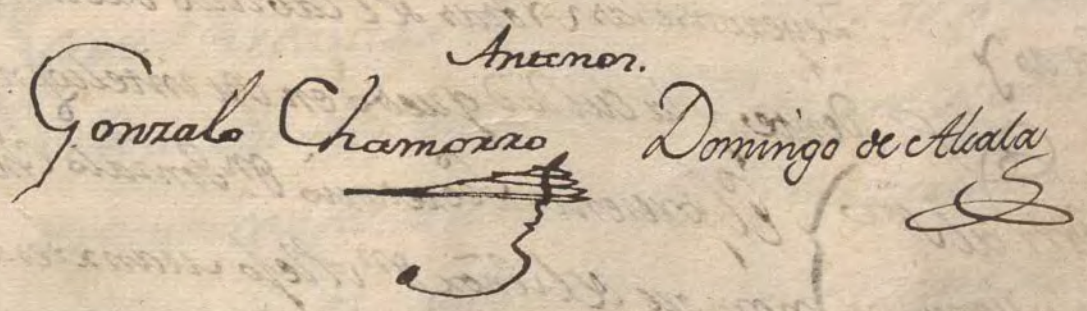 Antenor.
Gonzalo Chamorro Domingo de Alcala